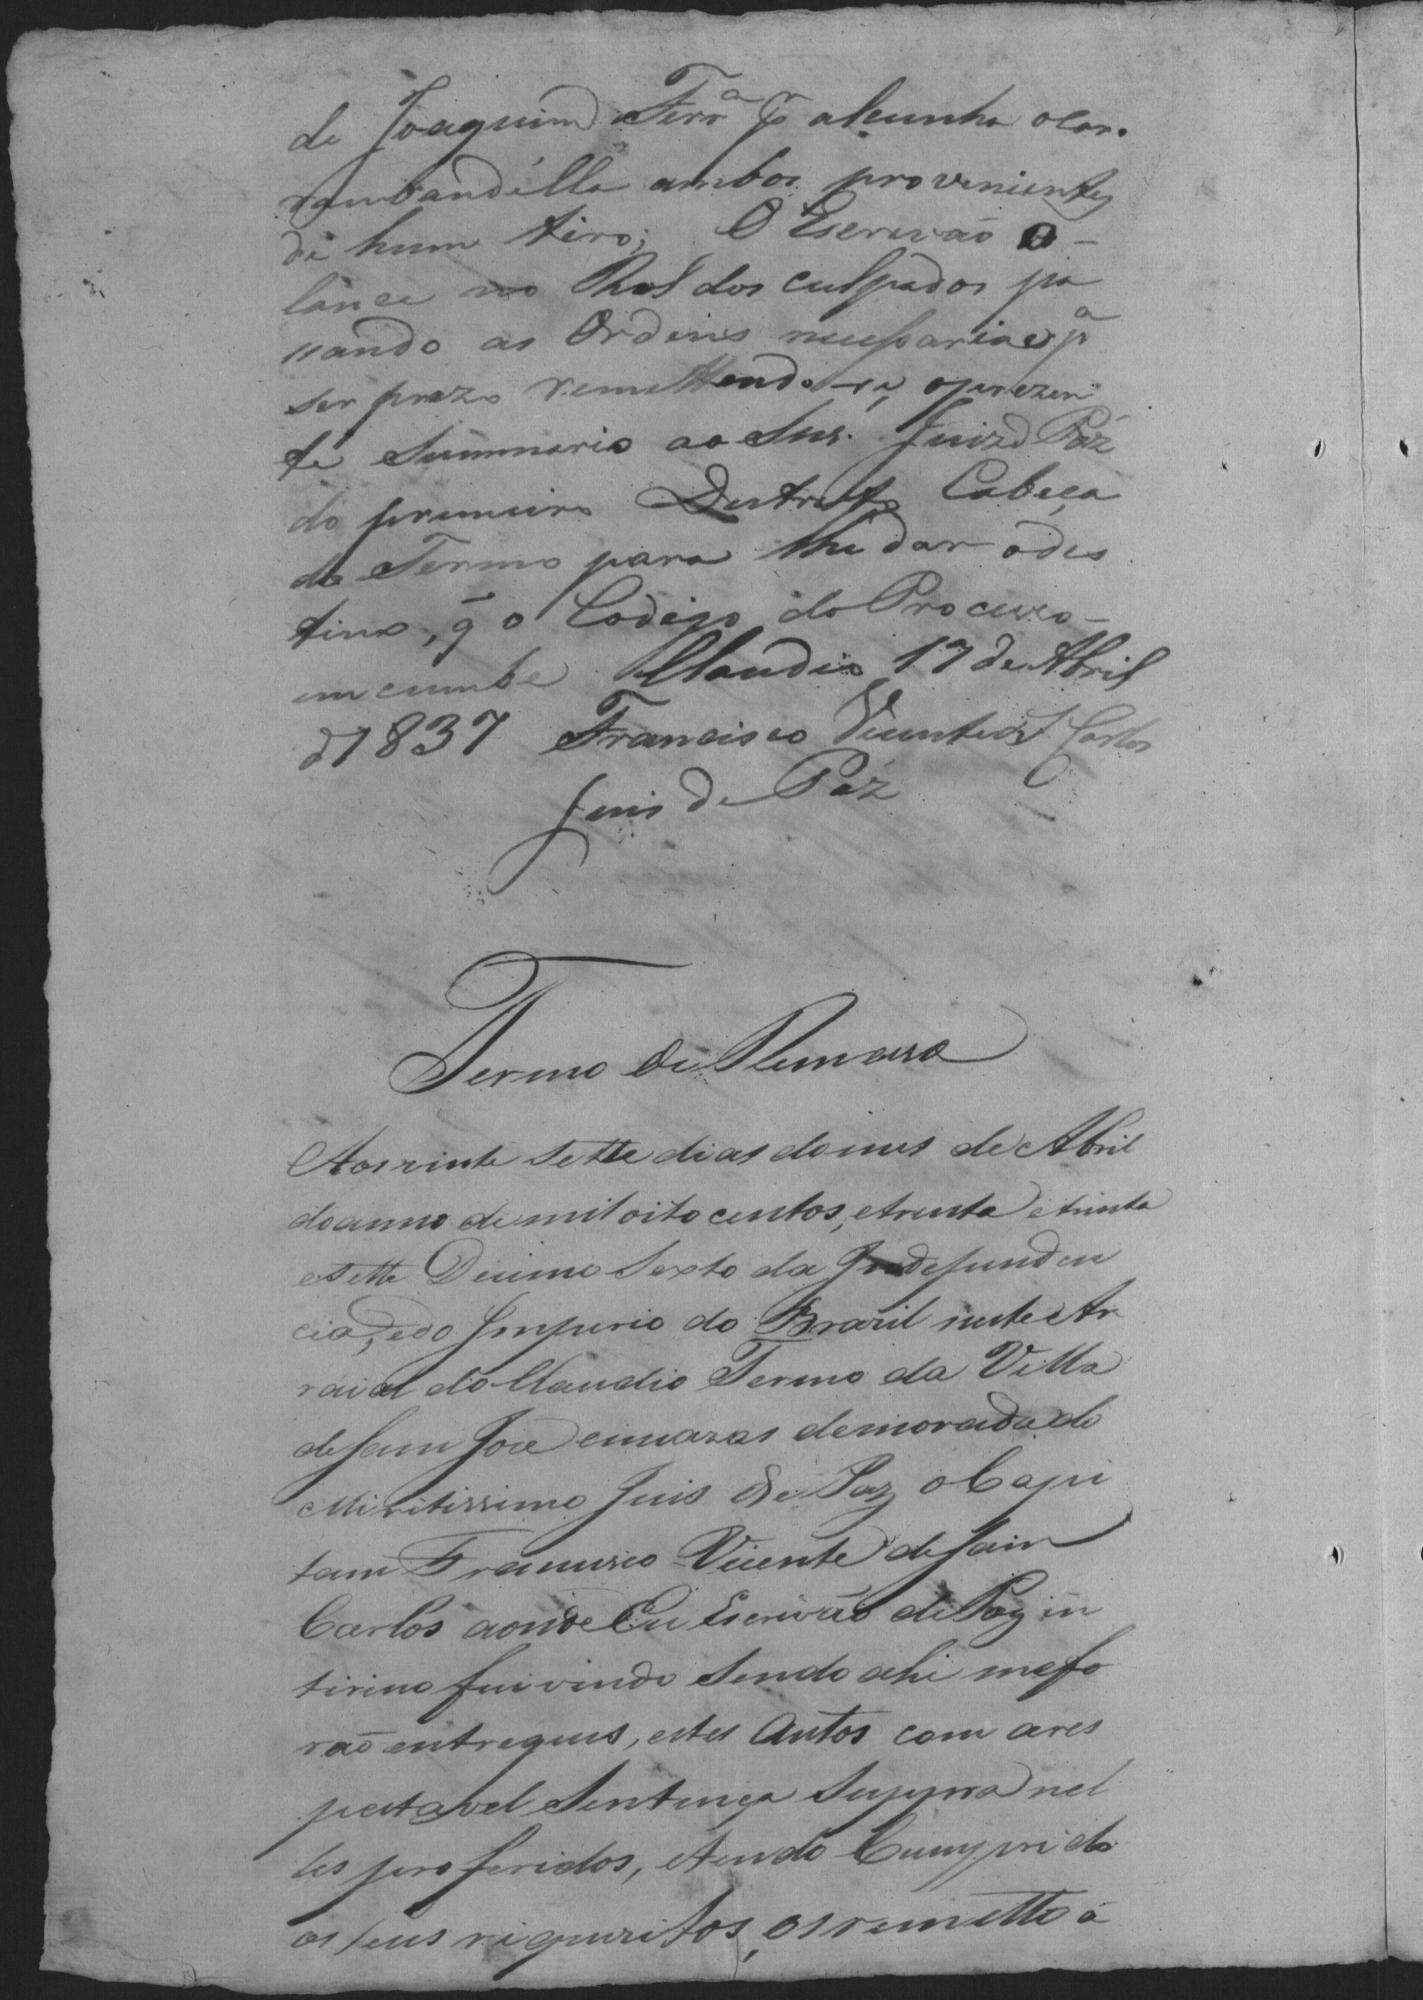 de Joaquim Ferrª pr alcunha o Cor-
rambandélla ambos provenientes
de hum tiro; O Escrivão o
lance no Rol dos culpados pa
ssando as Ordens necessarias pª
ser prezo remettendo-se, o prezen
te Summario ao Snr. Juiz d Páz
do primeiro Destricto Cabeça
do Termo para lhe dar o des
tino, q̃ o Codigo do Processo
encumbe Claudio 17 de Abril
d 1837 Francisco Vicente d S Carlos
Juis de Páz
Termo de Remessa
Aos vinte sette dias do mes de Abril
do anno de mil oito centos, e trinta e trinta
e sette Decimo Sexto da Independen
cia, e do Imperio do Brazil neste Ar
raial do Claudio Termo da Villa
de Sam José em cazas de morada do
Miritissimo Juis de Paz o Capi
tam Francisco Vicente de Sam
Carlos aonde Eu Escrivão de Paz in
tirino fui vindo Sendo ahi me fo
rão entregues, estes Autos com a res
peitavel Sentença Suppra nel
les proferidos, e tendo Cumprido
os seus riquizitos, os remetto á